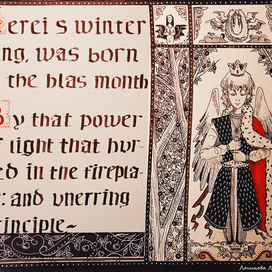 erci s winter
ng, was born
the blas month
By that power
light that hur-
ed in the firepla-
: and unerring
rinciple~